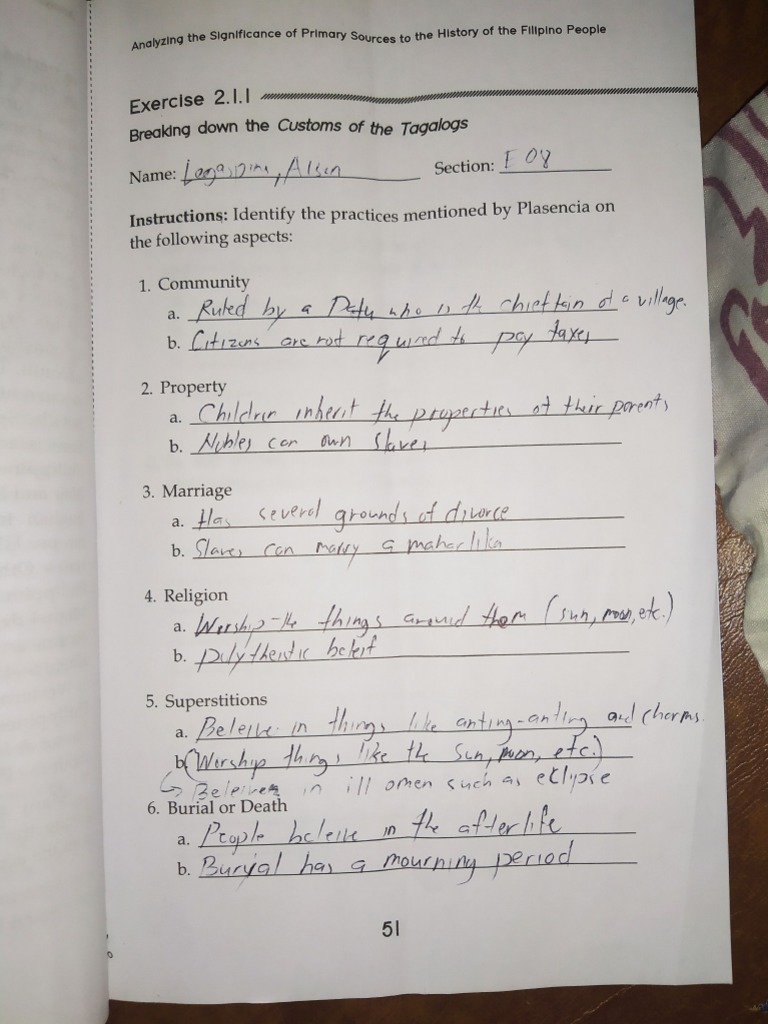 Analyzing the Significance of Primary Sources to the History of the Filipino People
Exercise 2.1.1
Breaking down the Customs of the Tagalogs
Name: Legaspina, Alben Section: I 08
Instructions: Identify the practices mentioned by Plasencia on
the following aspects:
1. Community
a. Ruled by a Datu who is the chieftain of a village.
b. Citizens are not required to pay taxes
2. Property
a. Children inherit the properties of their parents
b. Nobles can own slaves
3. Marriage
a. Has several grounds of divorce
b. Slaves can marry a maharlika
4. Religion
a. Worship the things around them (sun, moon, etc.)
b. polytheistic beleif
5. Superstitions
a. Beleive in things like anting-anting and charms.
b. (Worship things like the sun, moon, etc.)
↳ Beleives in ill omen such as eklipse
6. Burial or Death
a. People beleive in the afterlife
b. Buryal has a mourning period
51